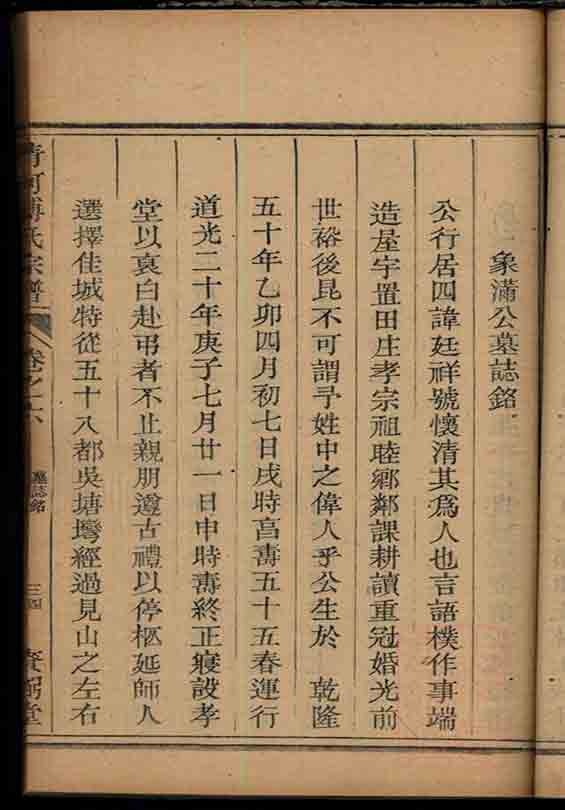 象滿公墓誌銘
公行居四諱廷祥號懷清其爲人也言語樸作事端
造屋宇置田庄孝宗祖睦鄉鄰課耕讀重冠婚光前
世裕後昆不可謂予姓中之偉人乎公生於 乾隆
五十年乙卯四月初七日戌時亯壽五十五春運行
道光二十年庚子七月廿一日申時壽終正寢設孝
堂以哀白赴弔者不止親朋遵古禮以停柩延師人
選擇佳城特從五十八都吳塘灣經過見山之左右
清河傅氏宗譜 卷之六 墓誌銘 三四 賚弼堂